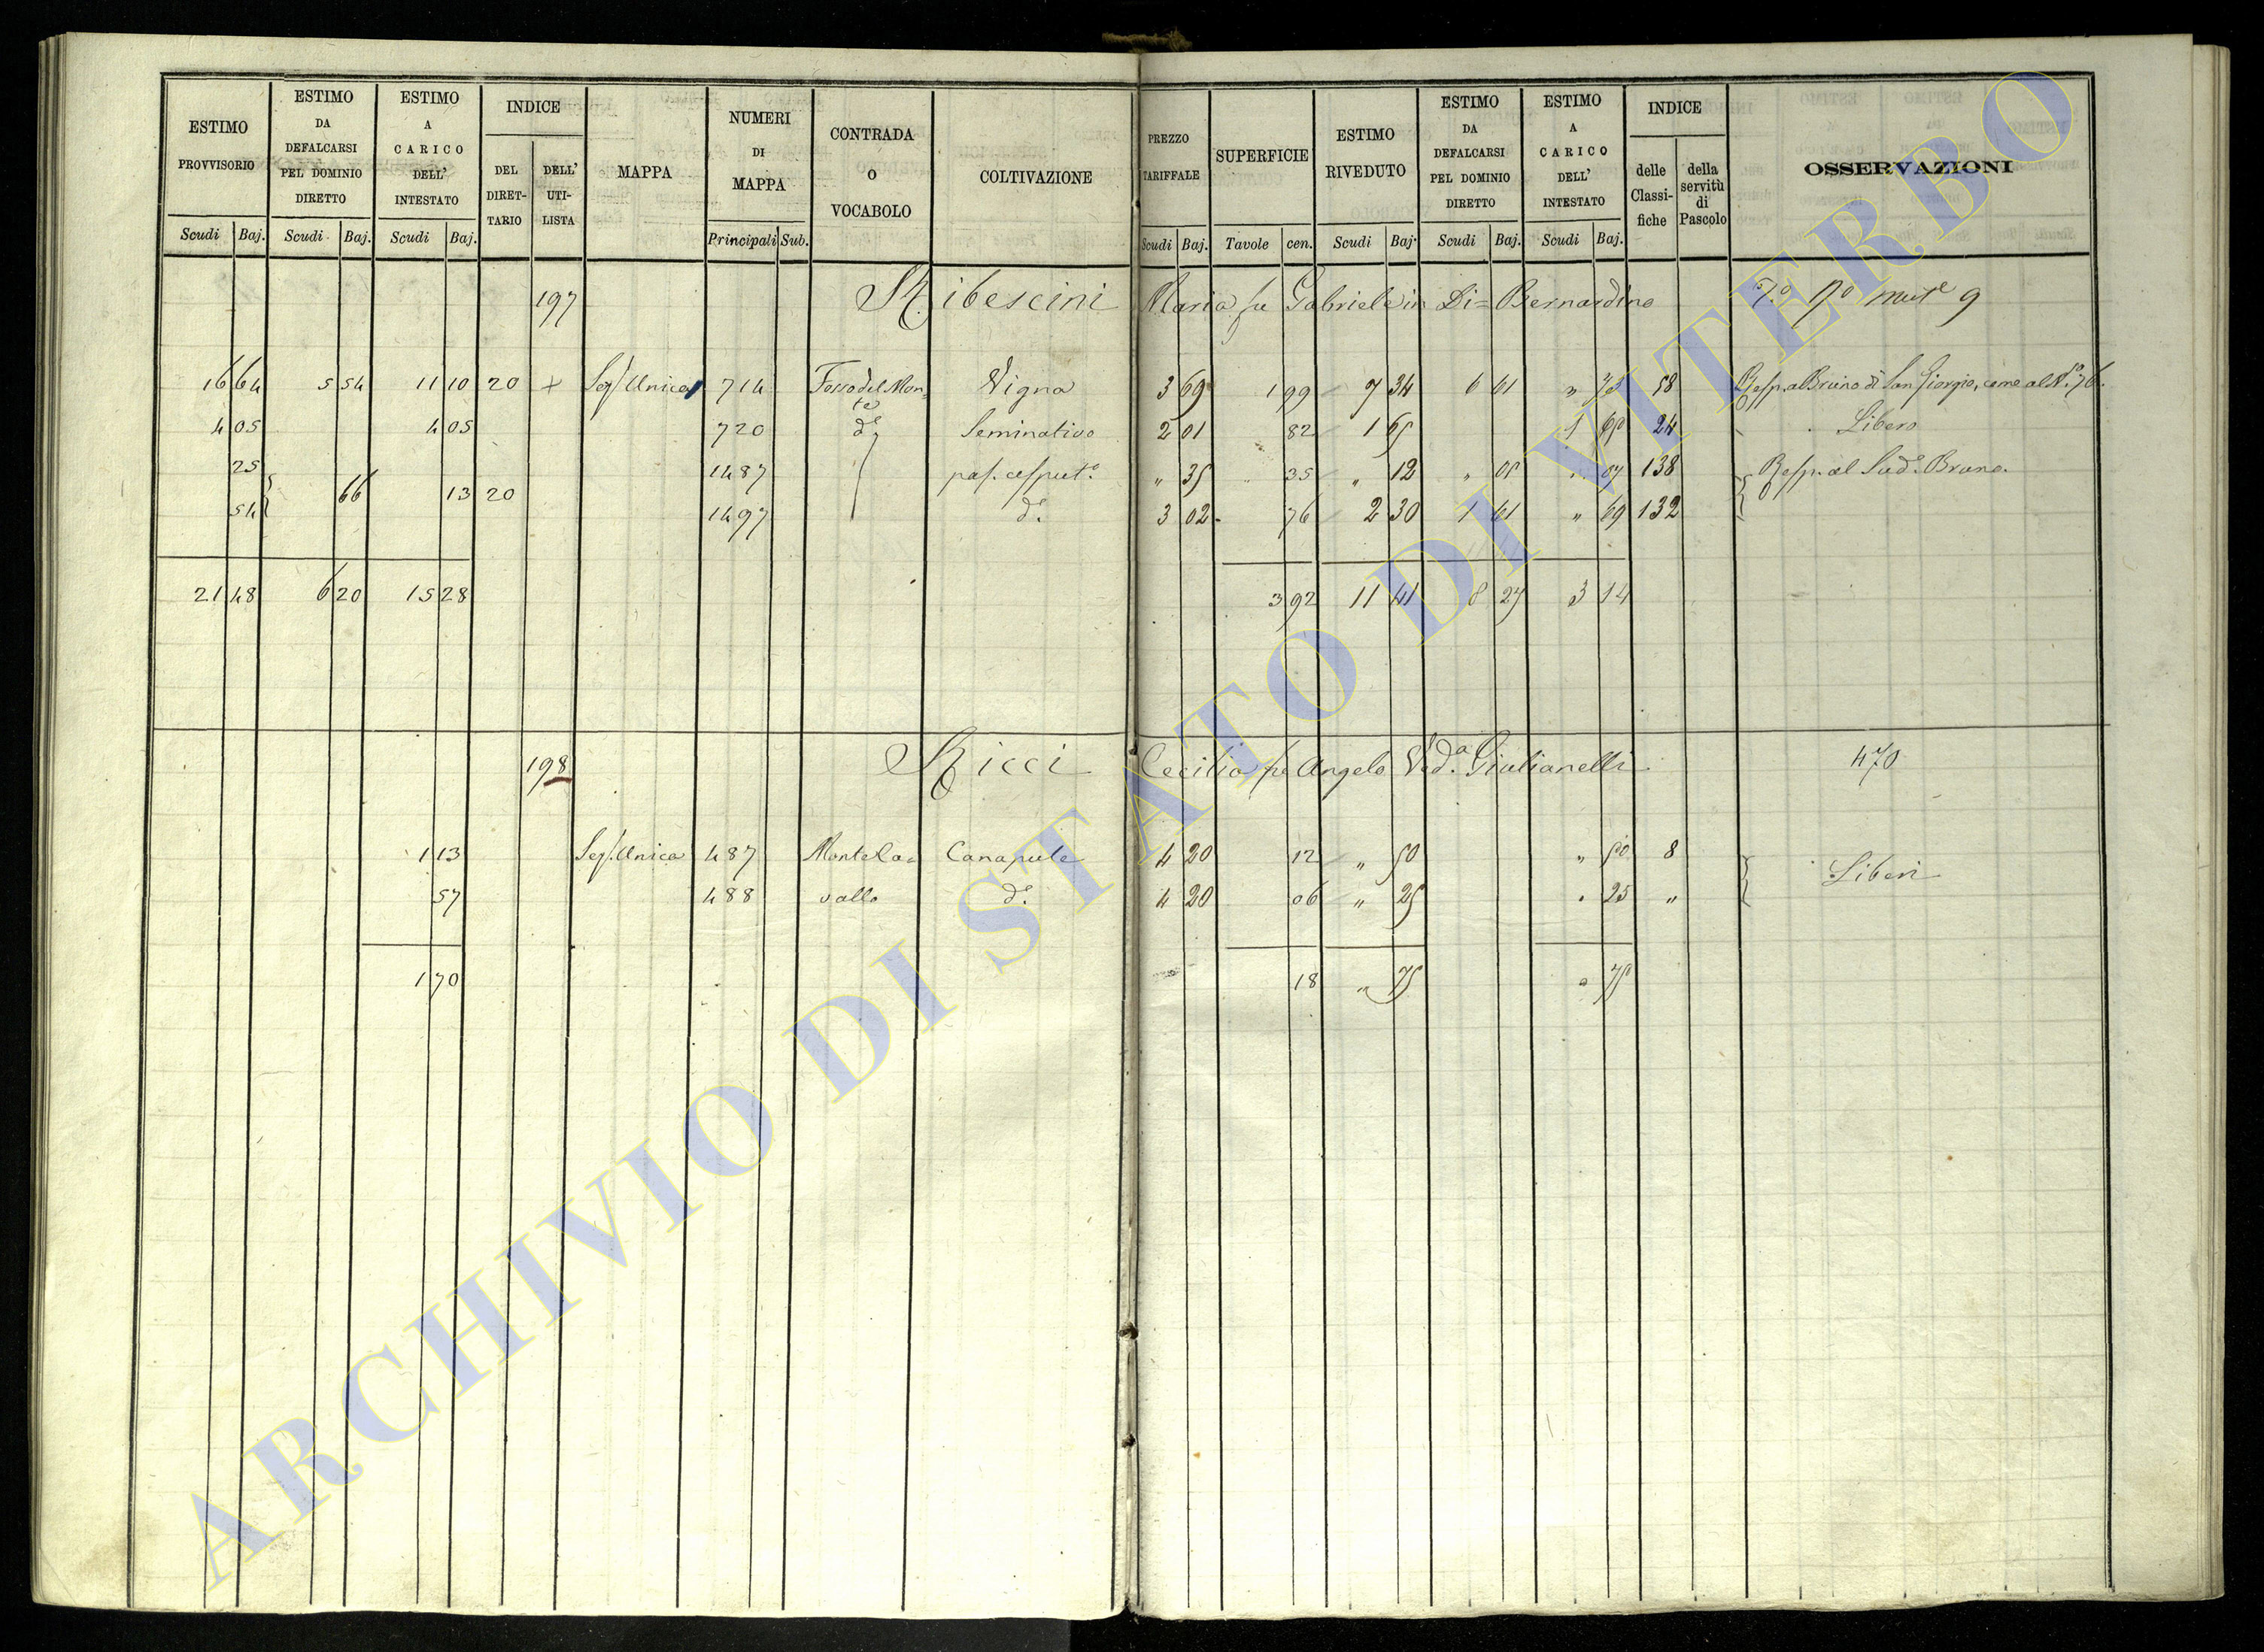 ESTIMO PROVVISORIO | ESTIMO DA DEFALCARSI PEL DOMINIO DIRETTO | ESTIMO A CARICO DELL' INTESTATO | INDICE | MAPPA | NUMERI DI MAPPA | CONTRADA O VOCABOLO | COLTIVAZIONE | PREZZO TARIFFALE | SUPERFICIE | ESTIMO RIVEDUTO | ESTIMO DA DEFALCARSI PEL DOMINIO DIRETTO | ESTIMO A CARICO DELL' INTESTATO | INDICE | OSSERVAZIONI
DEL DIRET-TARIO | DELL' UTI-LISTA | delle Classi-fiche | della servitù di Pascolo
Scudi | Baj. | Scudi | Baj. | Scudi | Baj. | Principali | Sub. | Scudi | Baj. | Tavole | cen. | Scudi | Baj. | Scudi | Baj. | Scudi | Baj.
197 Ribescini Maria fu Gabriele in Di= Bernardino 9
16 64 | 5 54 | 11 10 | 20 | + | Sez. Unica | 714 | Fosso del Mon= | Vigna | 3 69 | 1 99 | 7 34 | 6 61 | " 73 | 58 | Resp. a Bruno di San Giorgio, come al N. 76.
te
4 05 | 4 05 | 720 | d.e | Seminativo | 2 01 | 82 | 1 65 | 1 65 | 24 | Libero
25 | 1487 | pas. cesput.o | " 35 | " 35 | " 12 | " 05 | " 07 | 138 | Resp. al Sud.o Bruno.
66 | 13 | 20
54 | 1497 | d.o | 3 02 | 76 | 2 30 | 1 61 | " 69 | 132
21 48 | 6 20 | 15 28 | 3 92 | 11 41 | 8 27 | 3 14
198 Ricci Cecilia fu Angelo Ved.a Giulianelli 470
1 13 | Sez. Unica | 487 | Montela= | Canapule | 4 20 | 12 | " 50 | " 50 | 8 | Liberi
57 | 488 | vallo | d.o | 4 20 | 06 | " 25 | " 25 | "
1 70 | 18 | " 75 | " 75
ARCHIVIO DI STATO DI VITERBO